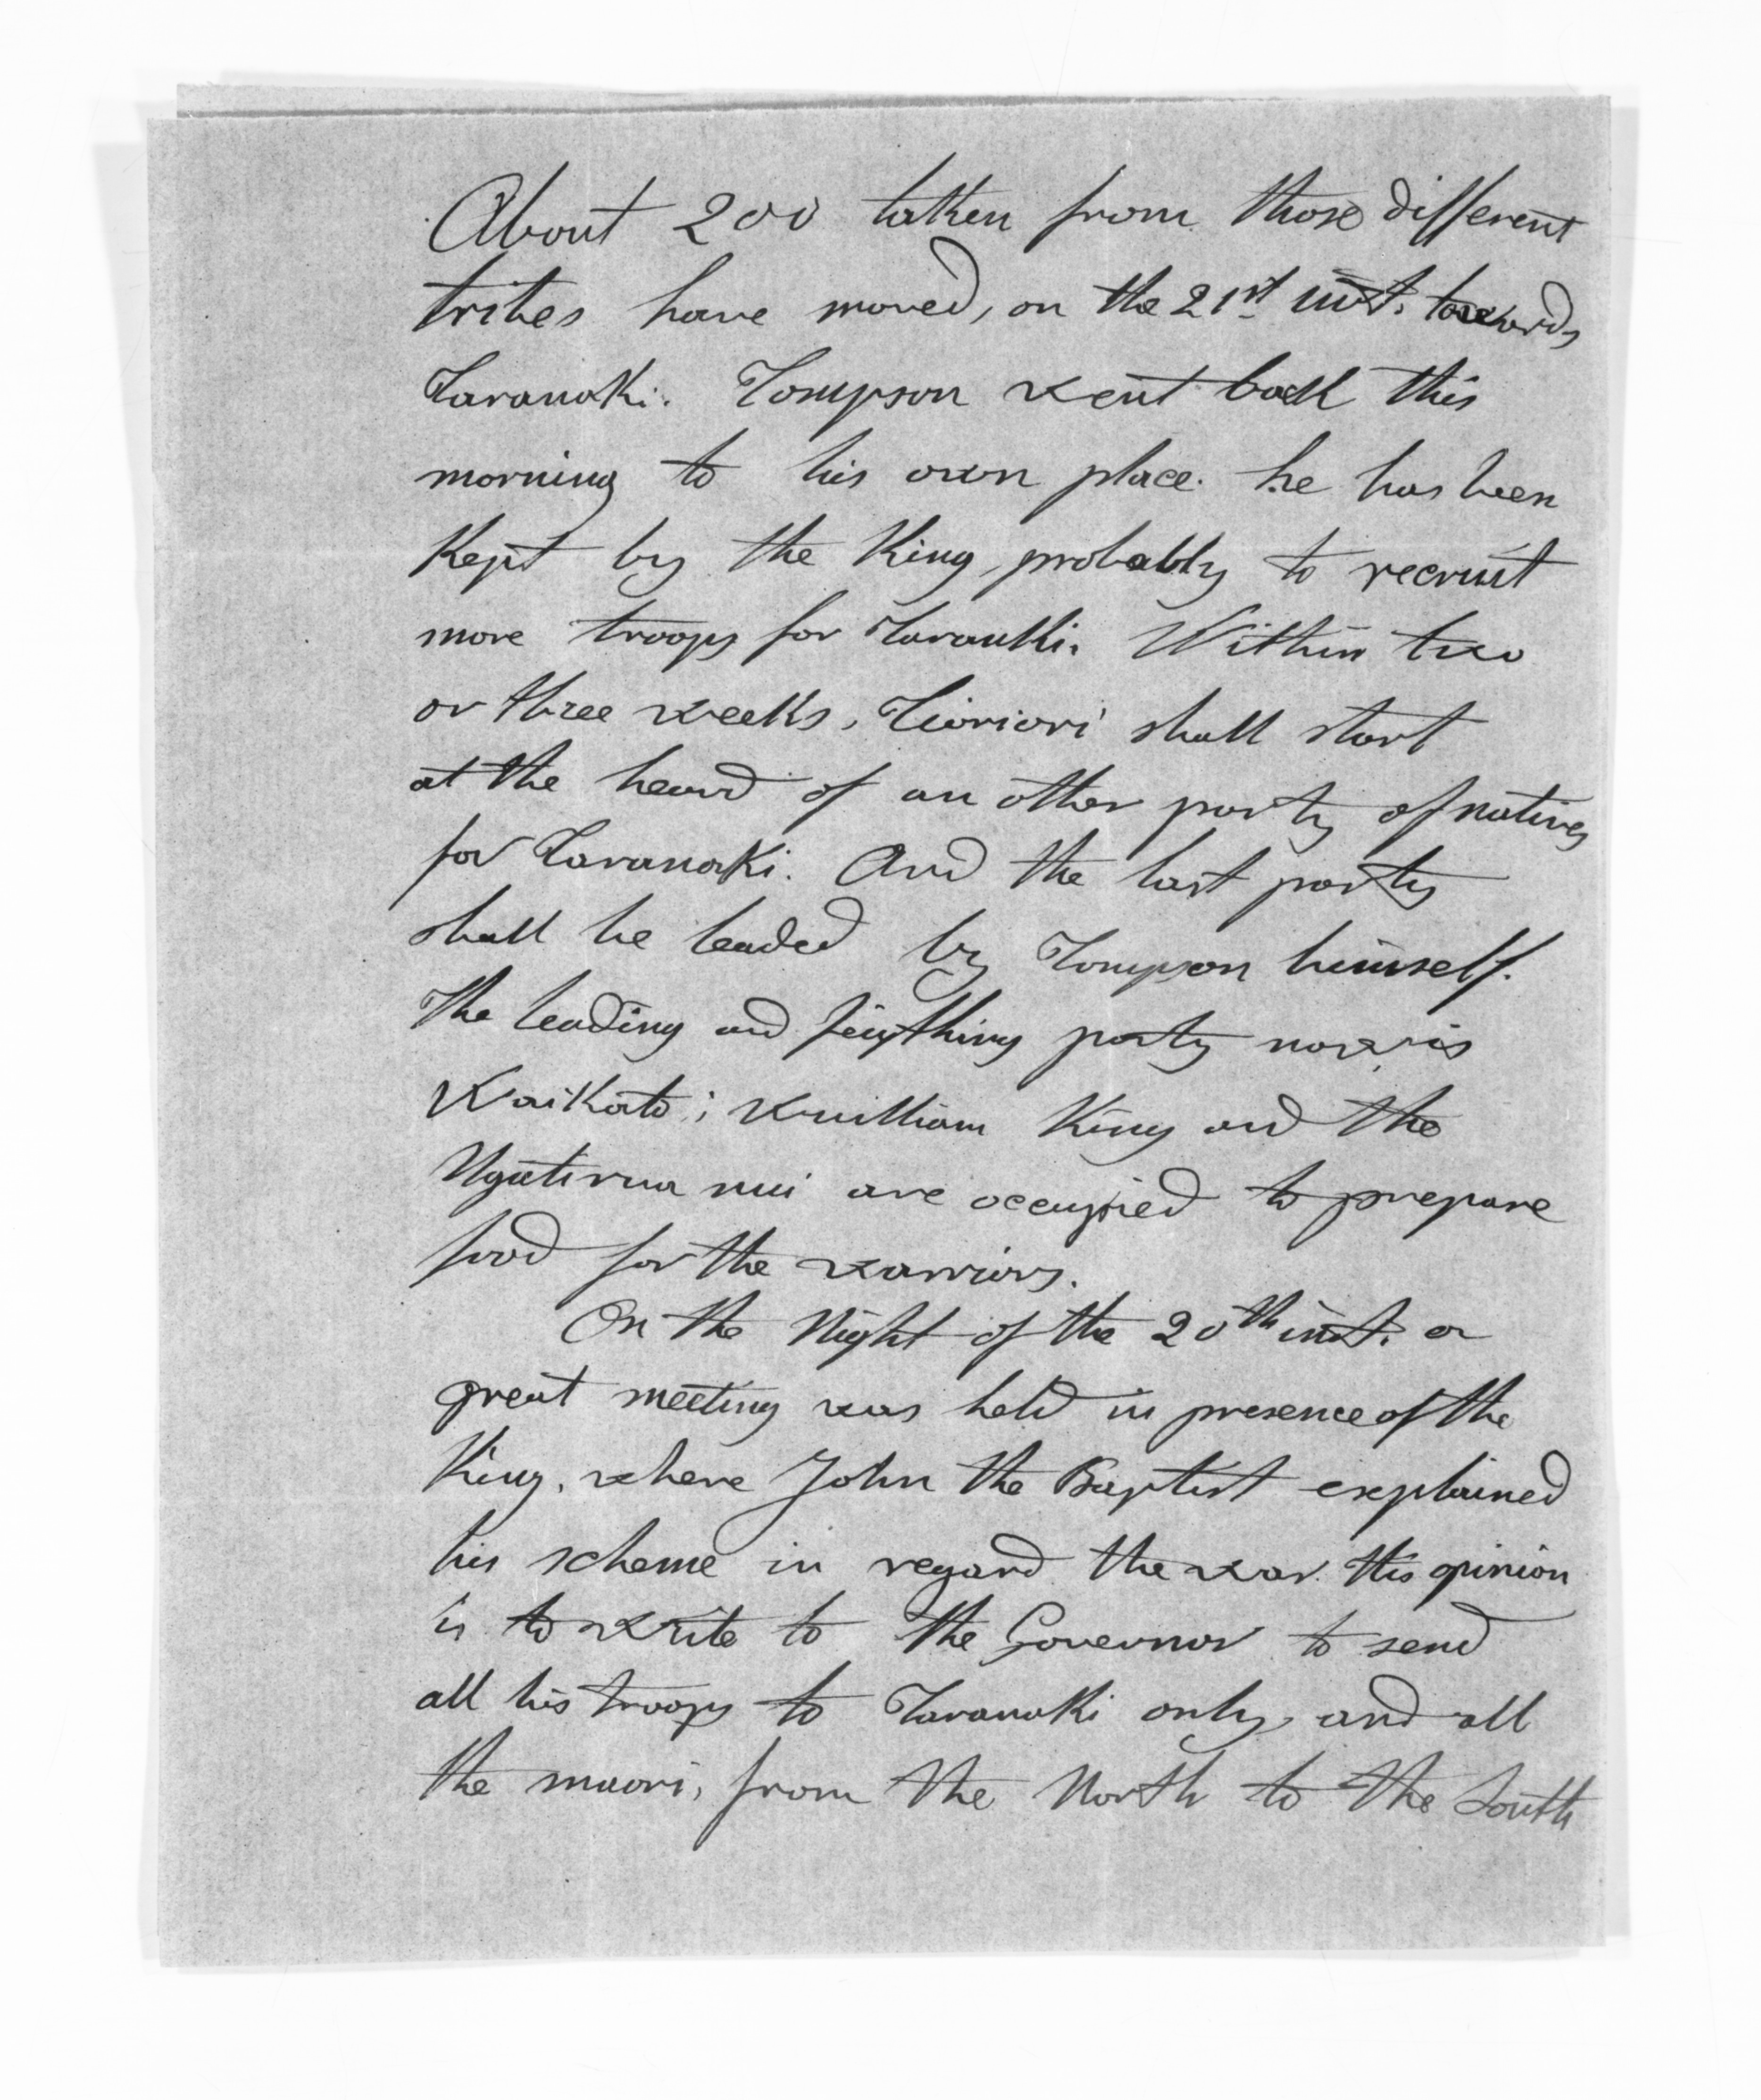 About 200 taken from those different
tribes have moved, on the 21st inst. towards
Taranaki. Tompson went back this
morning to his own place. he has been
Kept by the King, probably to recruit
more troops for Taranki. Within two
or three weeks, Tioriori shall start
at the head of an other party of natives
for Taranaki. And the last party
shall be leaded by Tompson himself.
The leading and feigthing party now is
Waikato; William King and the
Ngatirua nui are occupied to prepare
food for the warriors.
On the Night of the 20th inst. a
great meeting was held in presence of the
King, where John the Baptist explained
his scheme in regard the war. His opinion
is to write to the Governor to send
all his troops to Taranaki only, and all
the maori, from the North to the South